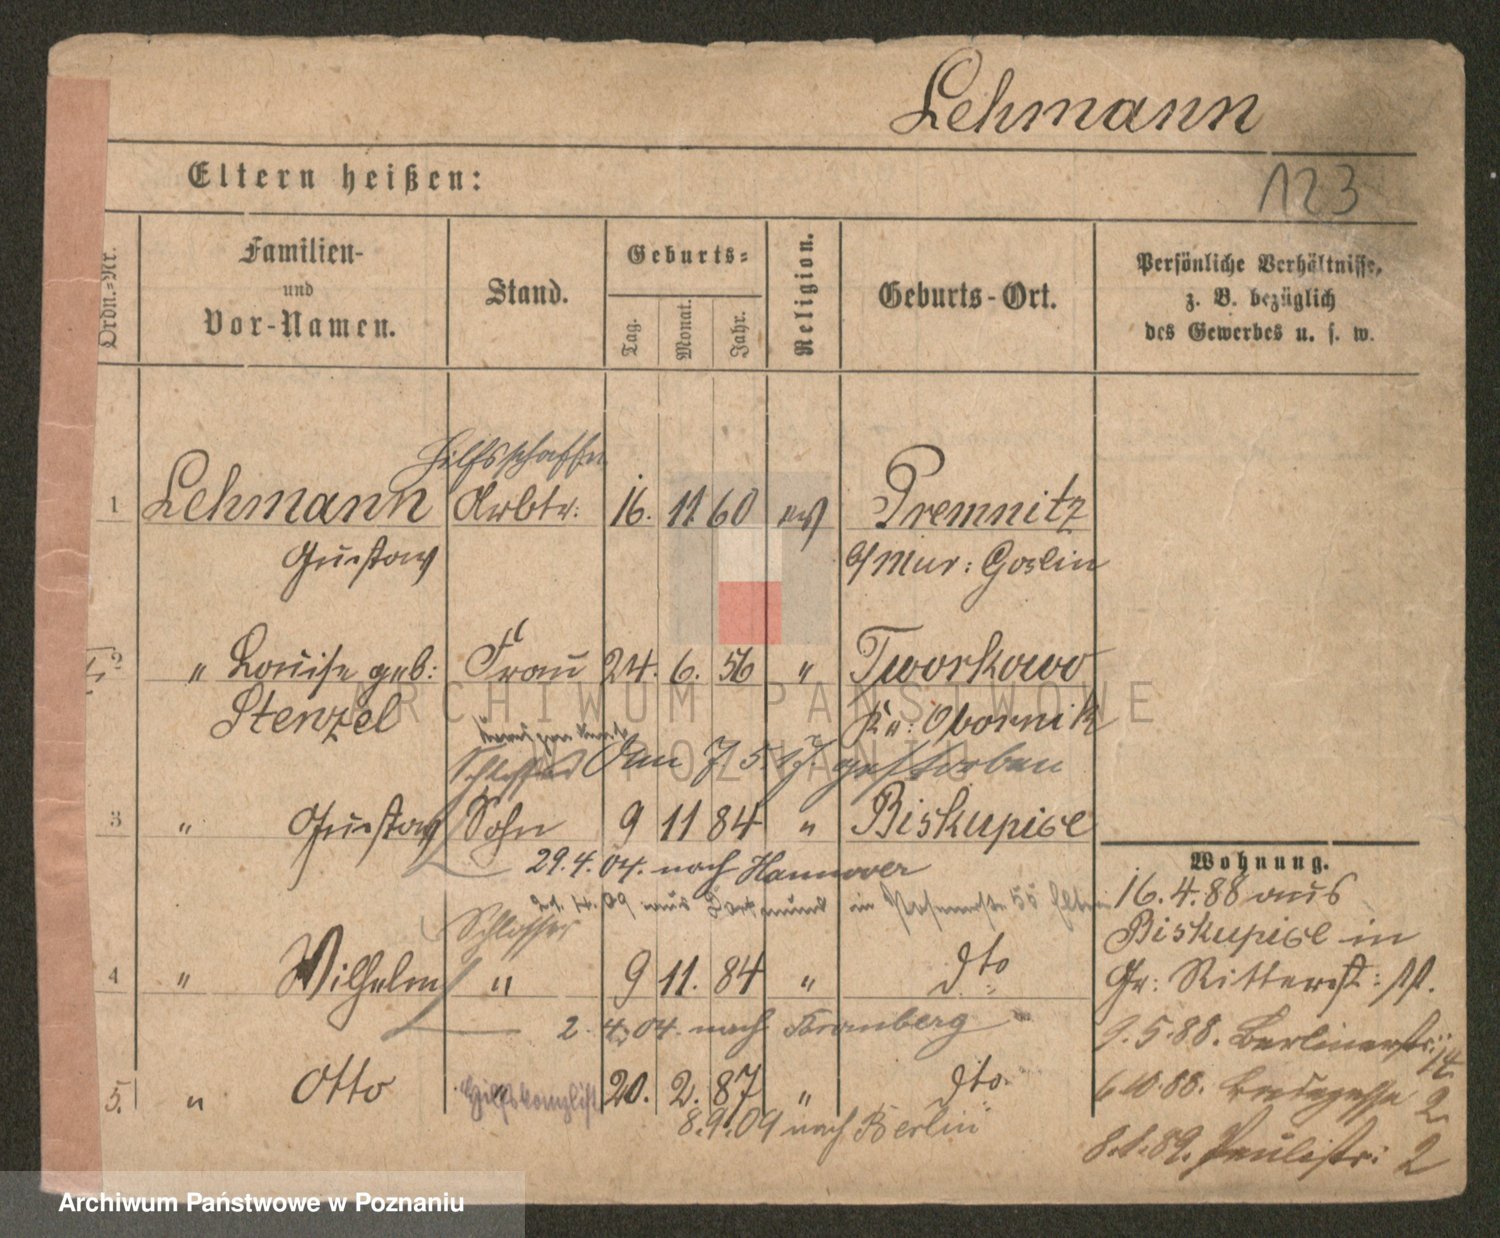 Lehmann
Eltern heißen:
123
Ordn.-Nr.
Familien-
und
Vor-Namen.
Stand.
Geburts-
Tag.
Monat.
Jahr.
Religion.
Geburts-Ort.
Persönliche Verhältnisse,
z. B. bezüglich
des Gewerbes u. s. w.
Hilfsschaffn.
1 Lehmann Arbtr. 16. 11 60 ev Premnitz
Gustav b/ Mur: Goslin
2 " Louise geb: Frau 24. 6. 56 " Tworkowo
Stenzel Kr: Obornik
Schlosser Am 7.5. gestorben
3 " Gustav Sohn 9 11 84 " Biskupice
29.4.04. nach Hannover
Wohnung.
16.4.88 aus
Biskupice in
Gr: Ritterst:
9.5.88. Berlinerstr: 14.
88. 2
89. Paulistr: 2
09 aus in 55 Eltern
Schlosser
4 " Wilhelm " 9 11. 84 " dto
2. 4. 04. nach Bromberg
5. " Otto " 20. 2. 87 " dto.
Hilfskanzlist
8.9.09 nach Berlin
ARCHIWUM PAŃSTWOWE
W POZNANIU
Archiwum Państwowe w Poznaniu